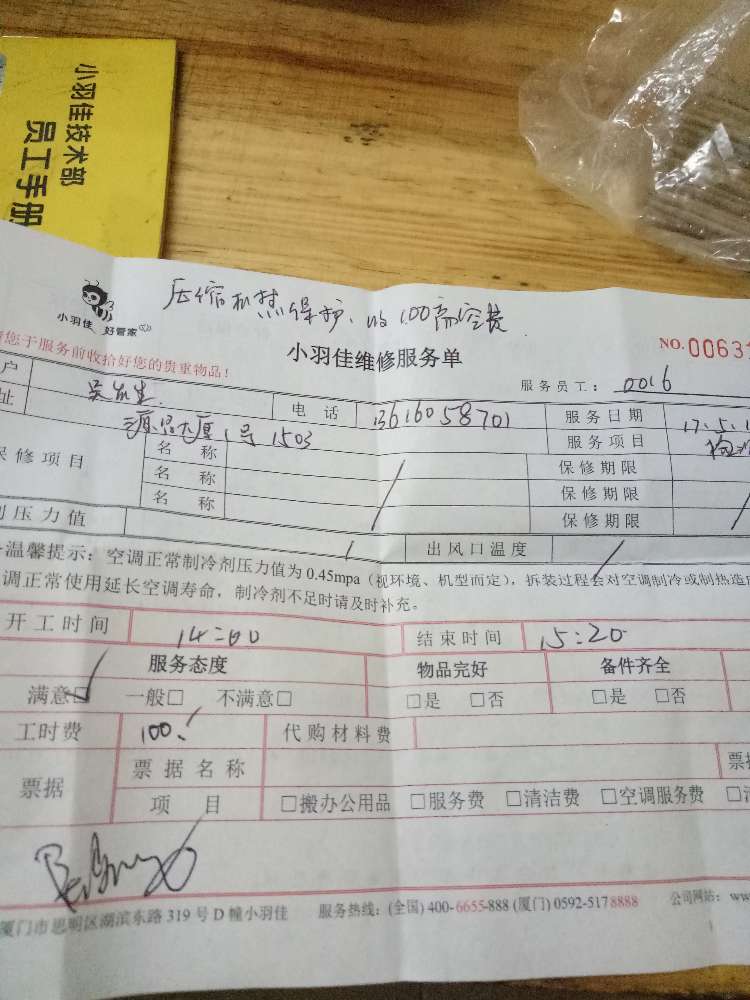 小羽佳技术部
员工手册
压缩机热保护、收100高空费
小羽佳 好管家
您于服务前收拾好您的贵重物品！
小羽佳维修服务单
NO.00631
服务员工： 0016
户
电 话 13616058701 服务日期 17.5.1
址 1号1503 服务项目
保修项目 名 称 保修期限
名 称 保修期限
名 称 保修期限
压力值 出风口温度
温馨提示：空调正常制冷剂压力值为 0.45mpa（视环境、机型而定），拆装过程会对空调制冷或制热造
调正常使用延长空调寿命，制冷剂不足时请及时补充。
开工时间 14:00 结束时间 15:20
服务态度 物品完好 备件齐全
满意☑ 一般□ 不满意□ □是 □否 □是 □否
工时费 100 代购材料费
票据 票据名称 票
项 目 □搬办公用品 □服务费 □清洁费 □空调服务费
厦门市思明区湖滨东路 319 号 D 幢小羽佳 服务热线：(全国) 400-6655-888 (厦门) 0592-5178888 公司网站：ww